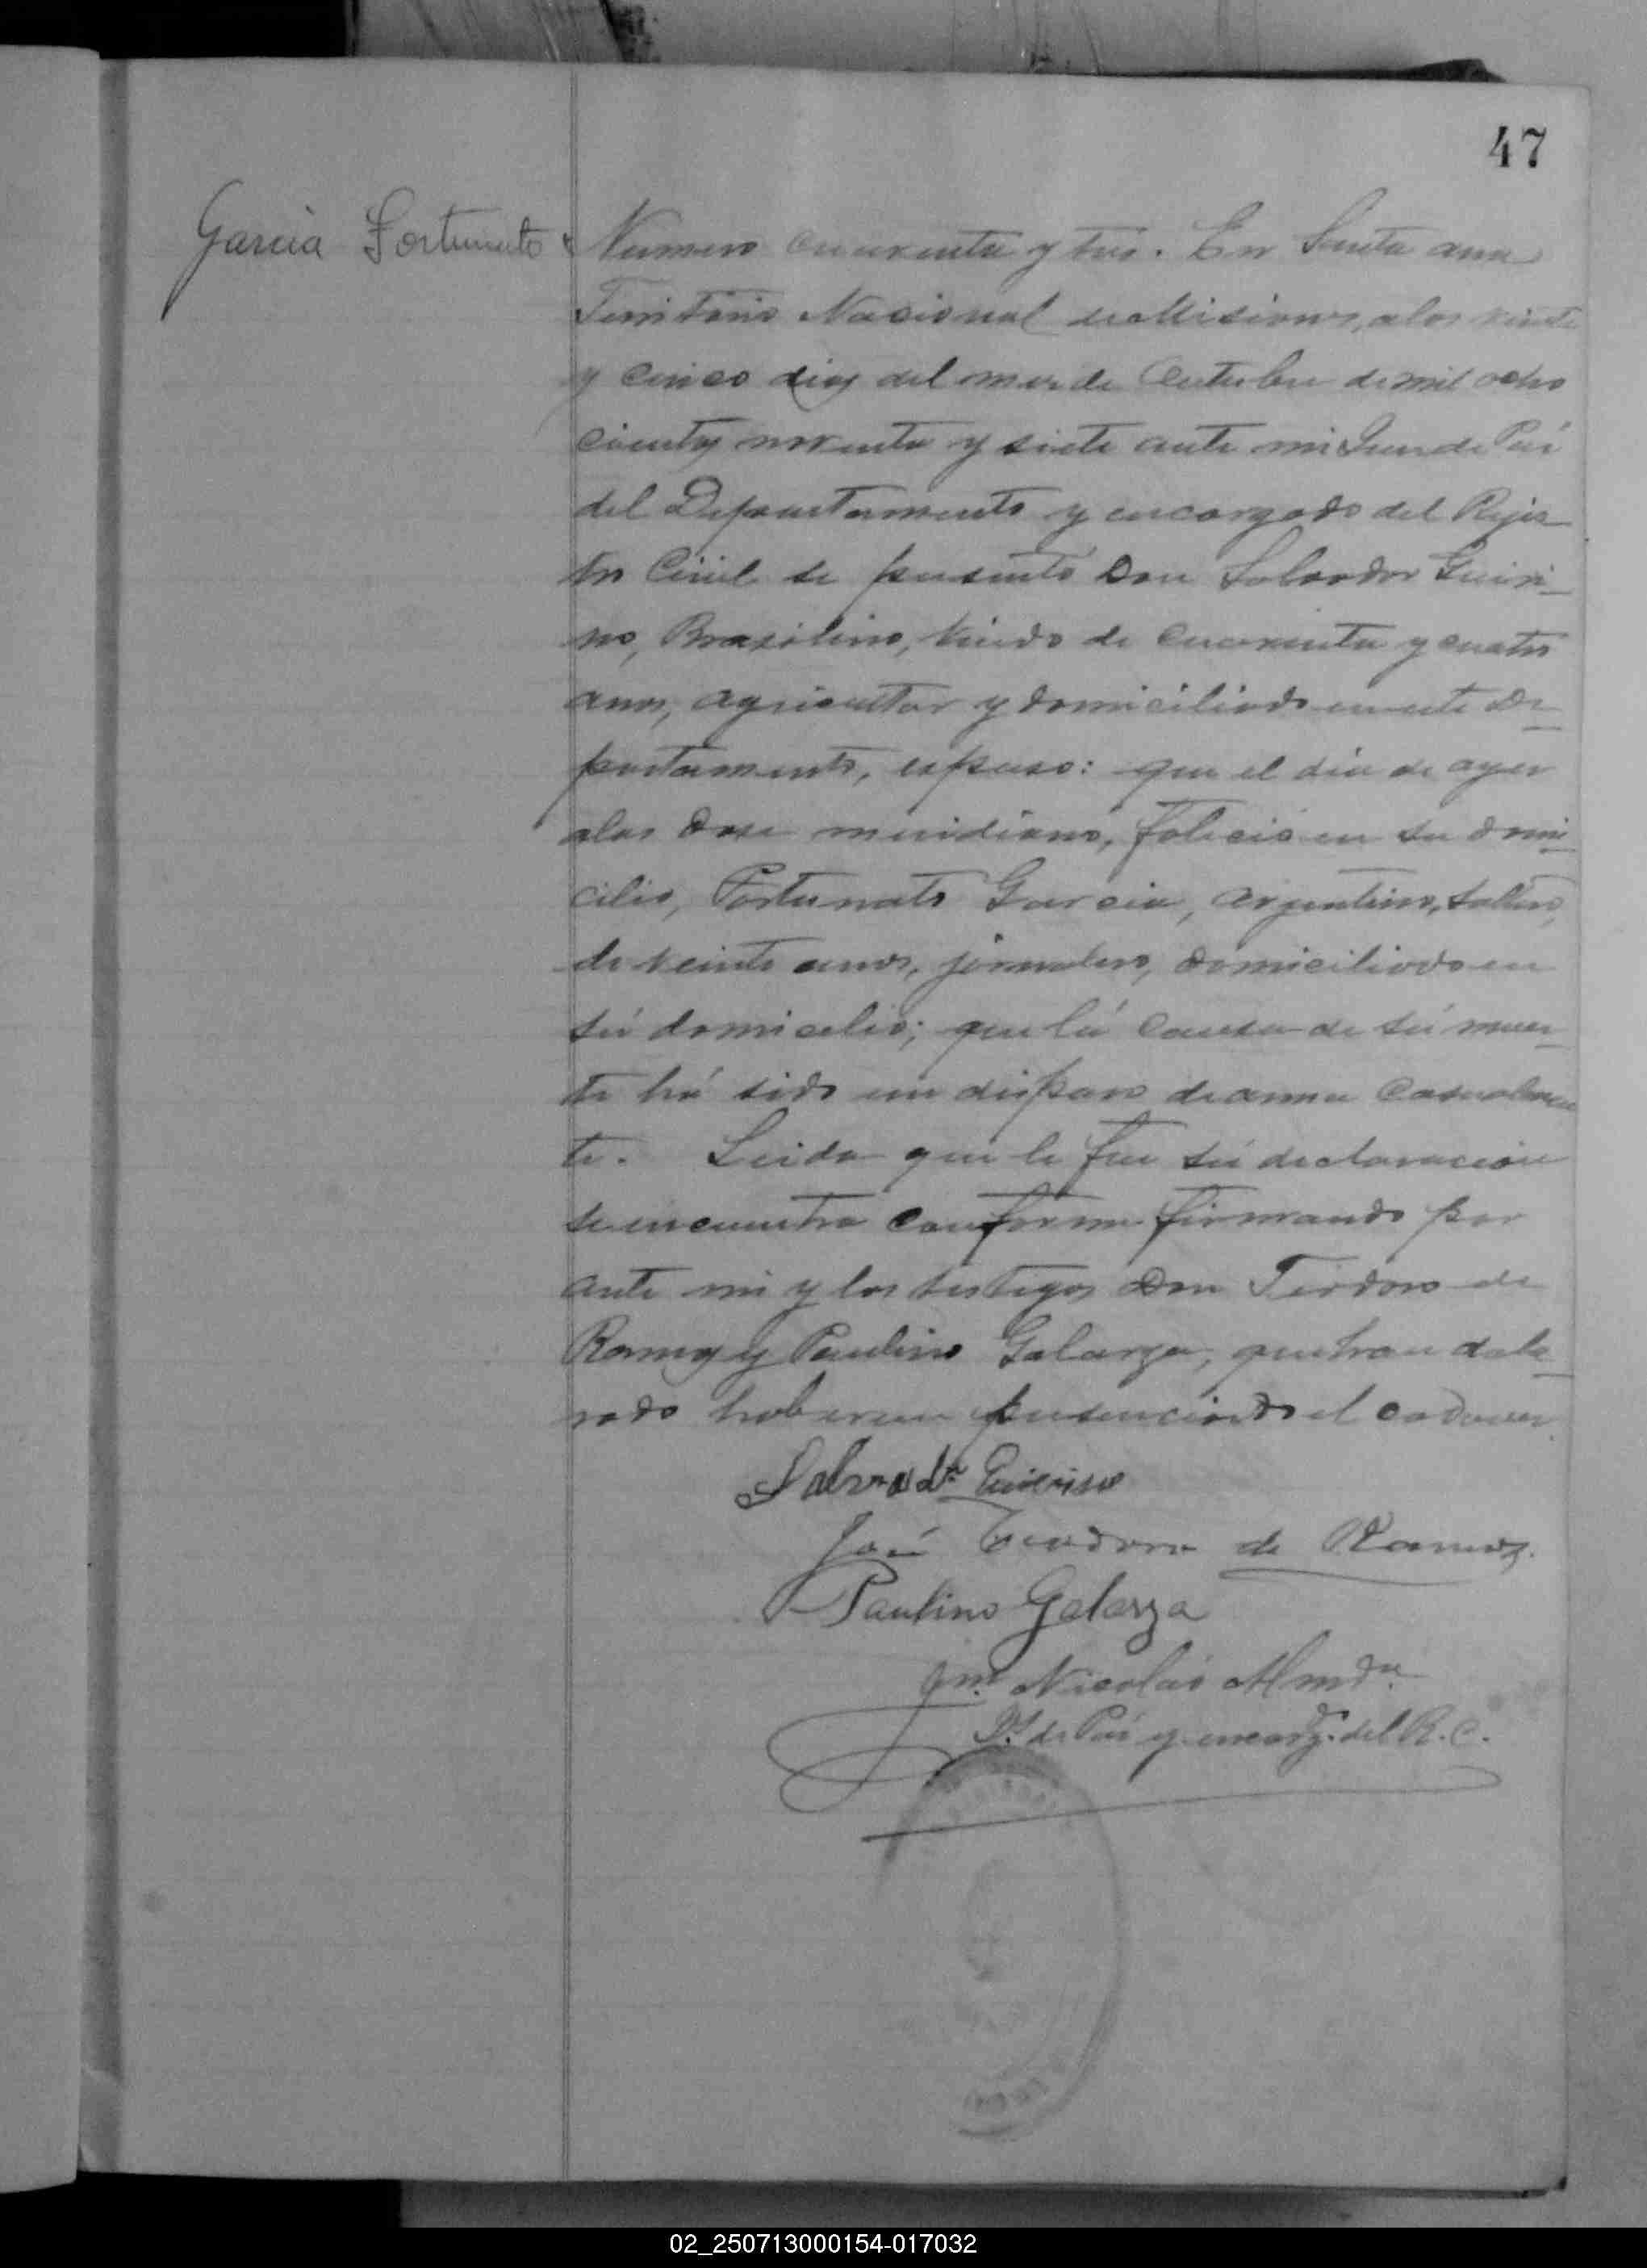 47
Garcia Fortunato
Numero cuarenta y tres. En Santa ana
Territorio Nacional de Misiones, a los veinte
y cinco dias del mes de Octubre de mil ocho
cientos noventa y siete ante mi Juez de Paz
del Departamento y encargado del Rejis-
tro Civil se presentó Don Salvador Guiri-
no, Brazilino, viudo de cuarenta y cuatro
anos, agricultor y domiciliado en este De-
partamento, espuso: que el dia de ayer
a las dose meridiano, falecio en su domi-
cilio, Fortunato Garcia, argentino, soltero,
de veinte anos, jornalero, domiciliado en
sú domicilio; que lá causa de sú muer-
te há sido un disparo de arma casualmen
te. Leida que le fue sú declaracion
se encuentra conforme firmando por
ante mi y los testigos Don Teodoro de
Ramos y Paulino Galarza, que han decla-
rado haberen presenciado el cadaver.
Salvador
José Teodoro de Ramos.
Paulino Galarza
Nicolás
J. de Paz y encarg. del R. C.
02_250713000154-017032